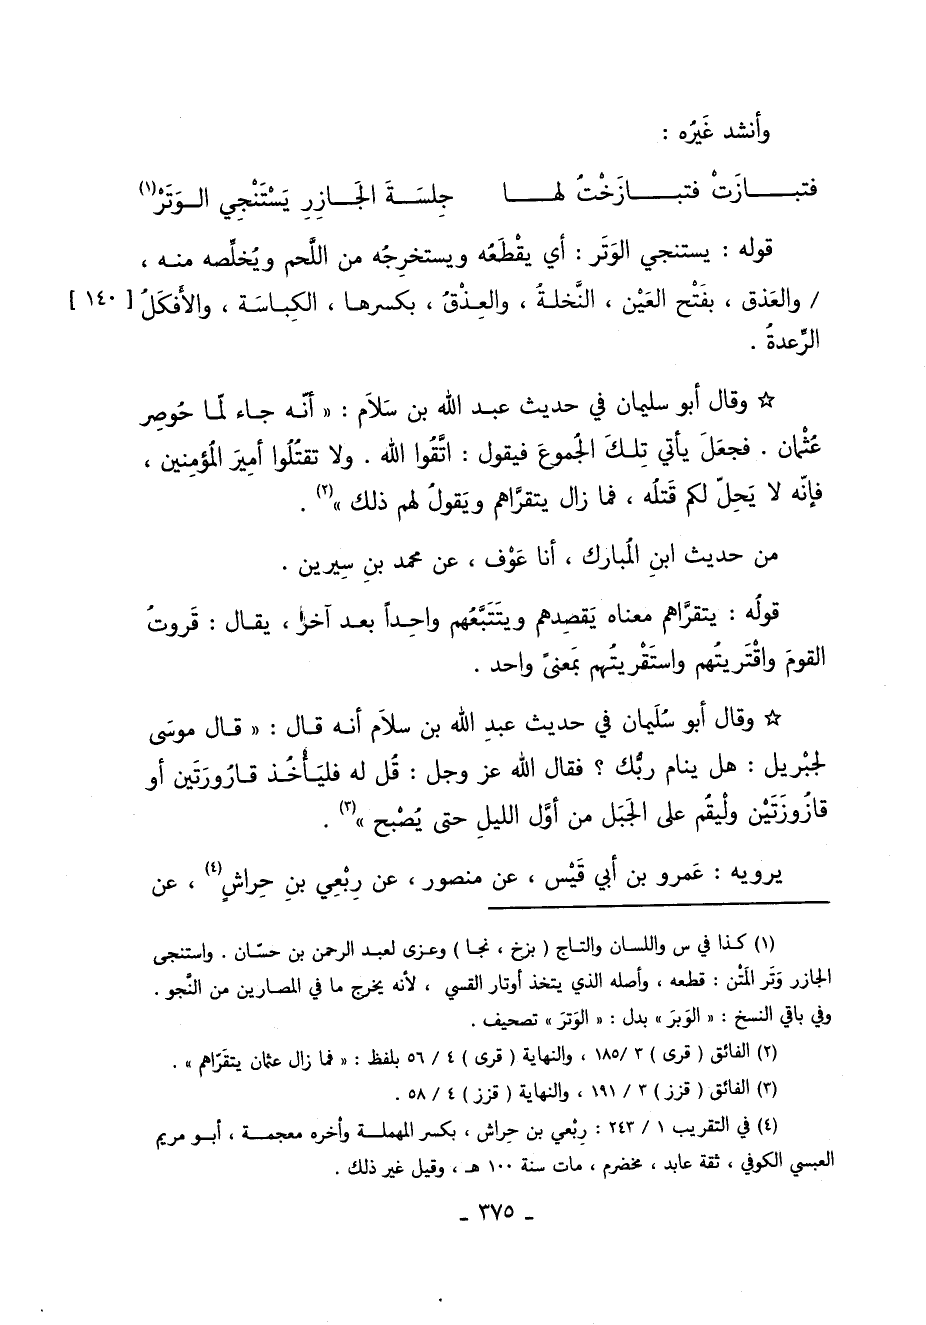 وأنشد غَيرُه :
فتبـازَتْ فتبـازَخْتُ لهـا جِلسَـةَ الجَـازِرِ يَسْتَنْجِي الـوَتَرْ(١)
قوله : يستنجي الوَتَر : أي يقْطَعُه ويستخرِجُه من اللَّحم ويُخلِّصه منه ،
/ والعَذق ، بفَتْح العَيْن ، النَّخلةُ ، والعِذْقُ ، بكسرها ، الكِباسَة ، والأَفكَلُ [ ١٤٠ ]
الرِّعدةُ .
☆ وقال أبو سليمان في حديث عبد الله بن سَلاَم : « أنّه جاء لمّا حُوصِر
عُثْمان . فجعَلَ يأتي تِلكَ الجُموعَ فيقول : اتَّقُوا الله . ولا تقتُلُوا أميرَ المُؤمِنين ،
فإنّه لا يَحِلّ لكم قَتلُه ، فما زال يتقرَّاهم ويَقولُ لهم ذلك »(٢) .
من حديث ابنِ المُبارك ، أنا عَوْف ، عن محمد بنِ سِيرين .
قولُه : يتقرَّاهم معناه يَقصِدهم ويتَتَبَّعُهم واحِداً بعد آخرَ ، يقال : قَروتُ
القومَ واقْتَريتُهم واستَقْريتُهم بمَعنىً واحد .
☆ وقال أبو سُلَيمان في حديث عبدِ الله بن سلاَم أنه قال : « قال موسَى
لجبْريل : هل ينام ربُّك ؟ فقال الله عز وجل : قُل له فليَأْخُذ قارُورَتَين أو
قازُوزَتَيْن ولْيقُم على الجَبَل من أوَّل الليلِ حتى يُصْبح »(٣) .
يرويه : عَمرو بن أبي قَيْس ، عن منصور ، عن رِبْعِي بنِ حِراشٍ(٤) ، عن
(١) كذا في س واللسان والتاج ( بزخ ، نجا ) وعزى لعبد الرحمن بن حسّان . واستنجى
الجازر وَتَر المَتْن : قطعه ، وأصله الذي يتخذ أوتار القسي ، لأنه يخرج ما في المصارين من النَّجو .
وفي باقي النسخ : « الوَبرَ » بدل : « الوَترَ » تصحيف .
(٢) الفائق ( قرى ) ٣ /١٨٥ ، والنهاية ( قرى ) ٤ / ٥٦ بلفظ : « فما زال عثمان يتقرّاهم » .
(٣) الفائق ( قزز ) ٣ / ١٩١ ، والنهاية ( قزز ) ٤ / ٥٨ .
(٤) في التقريب ١ / ٢٤٣ : رِبْعي بن حِراش ، بكسر المهملة وأخره معجمة ، أبو مريم
العبسي الكوفي ، ثقة عابد ، مخضرم ، مات سنة ١٠٠ هـ ، وقيل غير ذلك .
ـ ٣٧٥ ـ